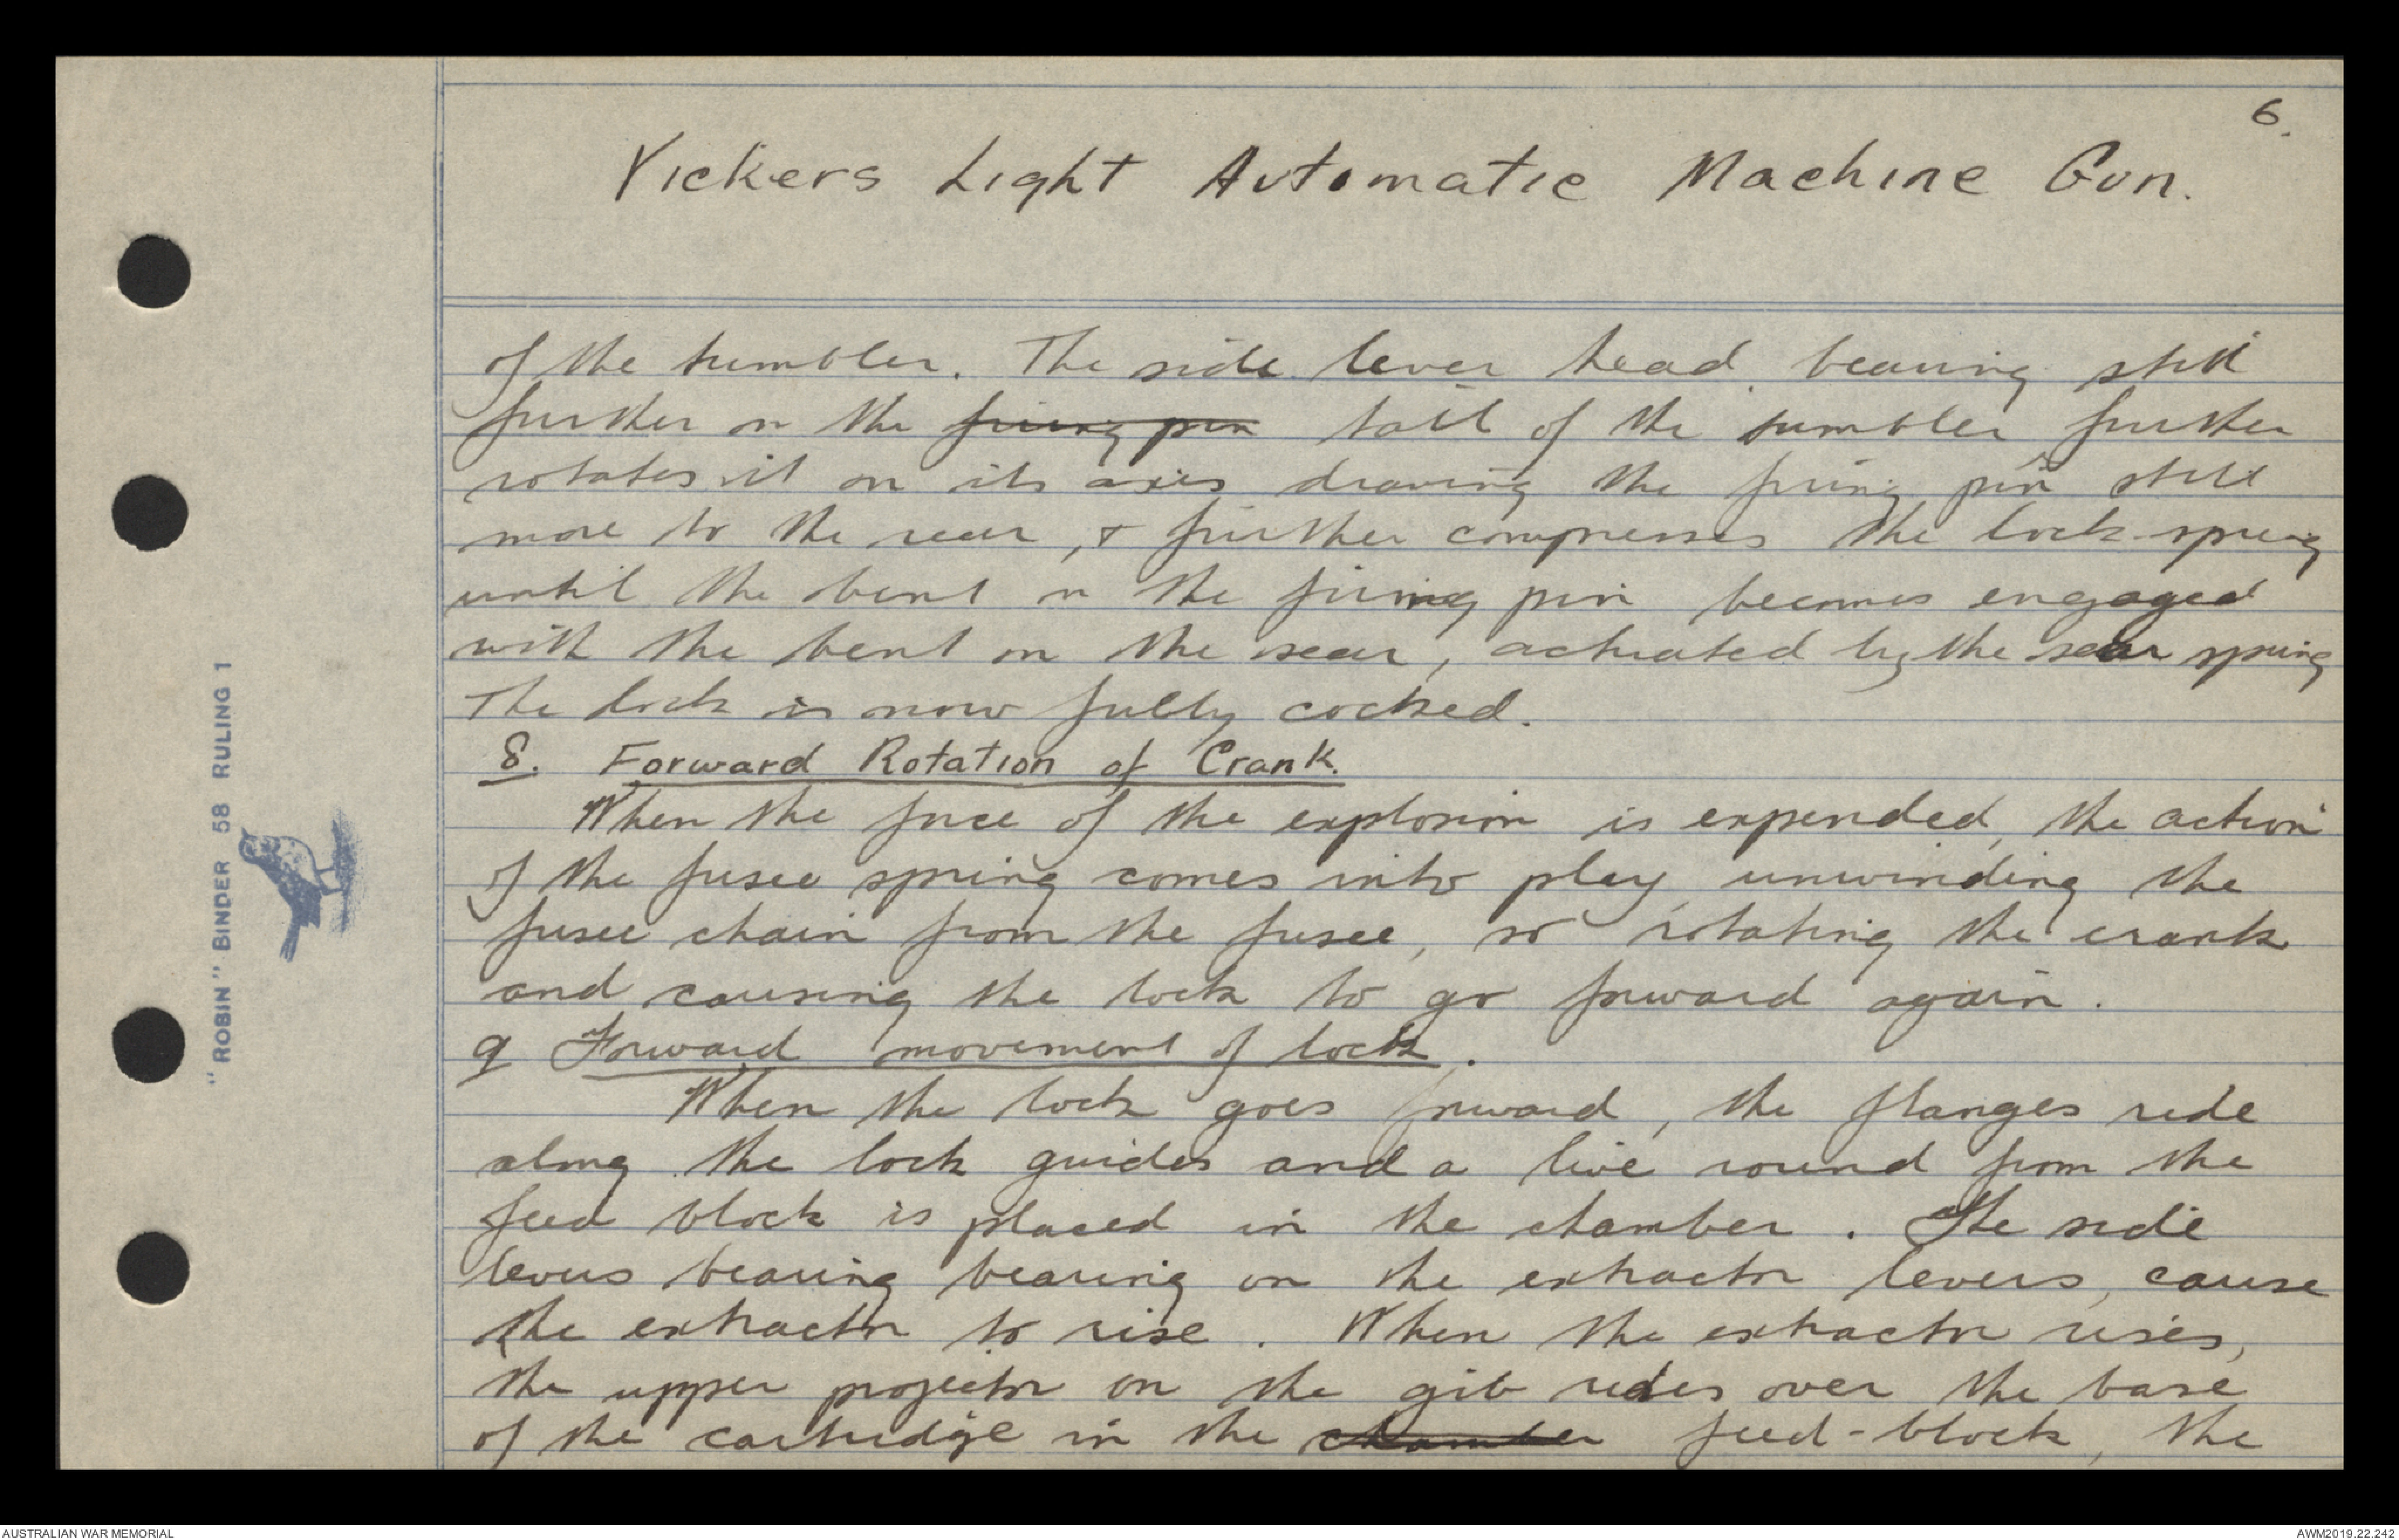 6.
Vickers Light Automatic Machine Gun.
of the tumbler. The side lever head bearing still
further on the firing pin tail of the tumbler further
rotates it on its axis drawing the firing pin still
more to the rear, & further compresses the lock spring
until the bent on the firing pin becomes engaged
with the bent on the sear, actuated by the sear spring
The lock is now fully cocked.
8. Forward Rotation of Crank.
When the force of the explosion is expended, the action
of the fusee spring comes into play, unwinding the
fusee chain from the fusee, so rotating the crank
and causing the lock to go forward again.
9 Forward movement of lock.
When the lock goes forward, the flanges ride
along the lock guides and a live round from the
feed block is placed in the chamber. The side
levers bearing bearing on the extractor levers, cause
the extractor to rise. When the extractor rises,
the upper projector on the gib rides over the base
of the cartridge in the chamber feed-block, the
"ROBIN" BINDER 58 RULING 1
AUSTRALIAN WAR MEMORIAL
AWM2019.22.242